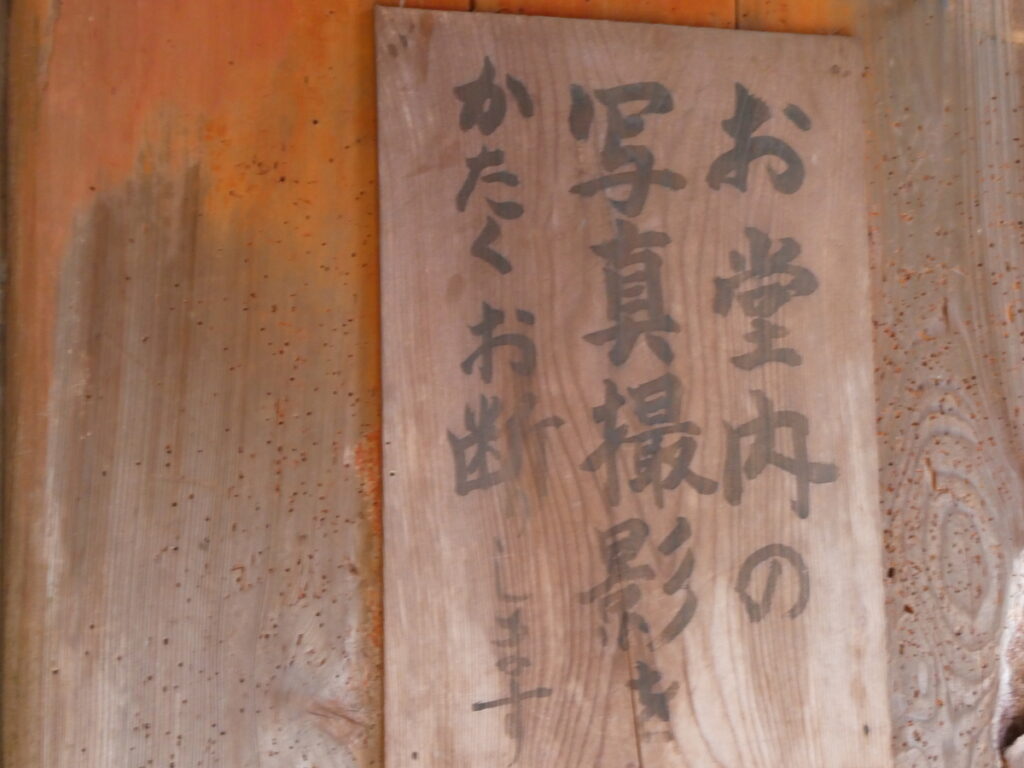 お堂内の
写真撮影を
かたくお断りします